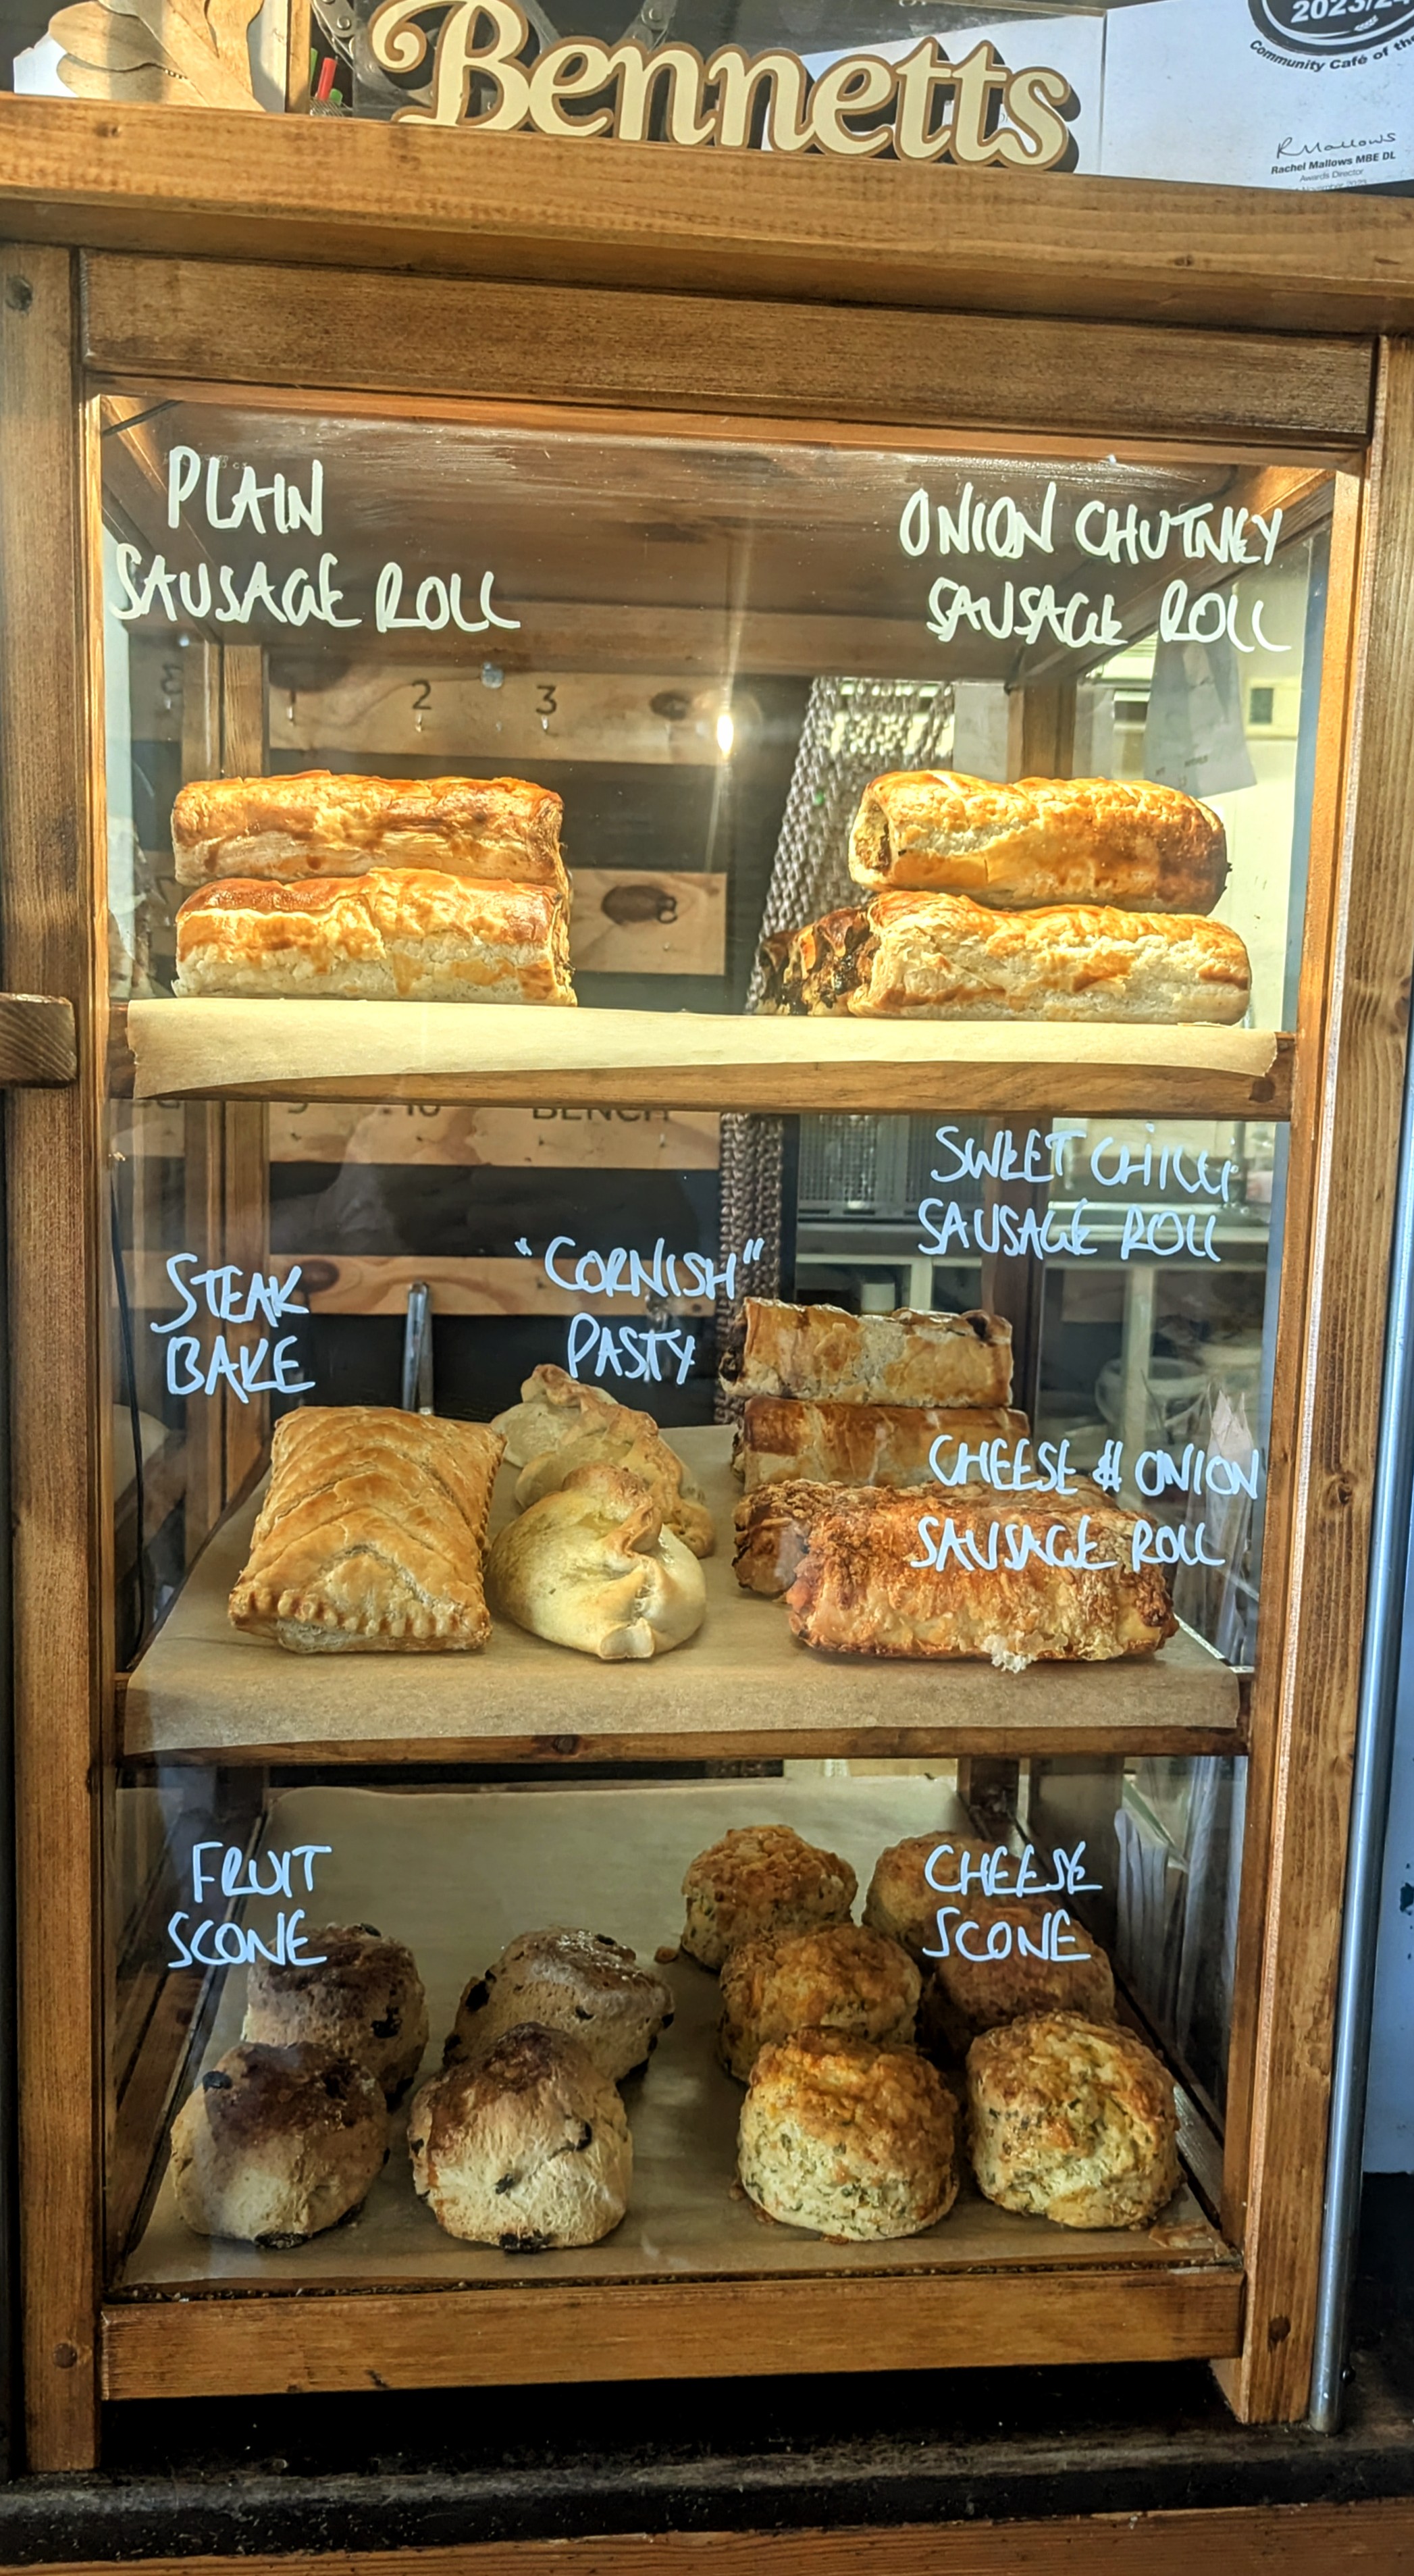 Bennetts
2023/24
Community Café of the
RMallows
Rachel Mallows MBE DL
Awards Director
November 2023
PLAIN
SAUSAGE ROLL
ONION CHUTNEY
SAUSAGE ROLL
1 2 3
8
9 10 BENCH
SWEET CHILLI
SAUSAGE ROLL
STEAK
BAKE
"CORNISH"
PASTY
CHEESE & ONION
SAUSAGE ROLL
FRUIT
SCONE
CHEESE
SCONE